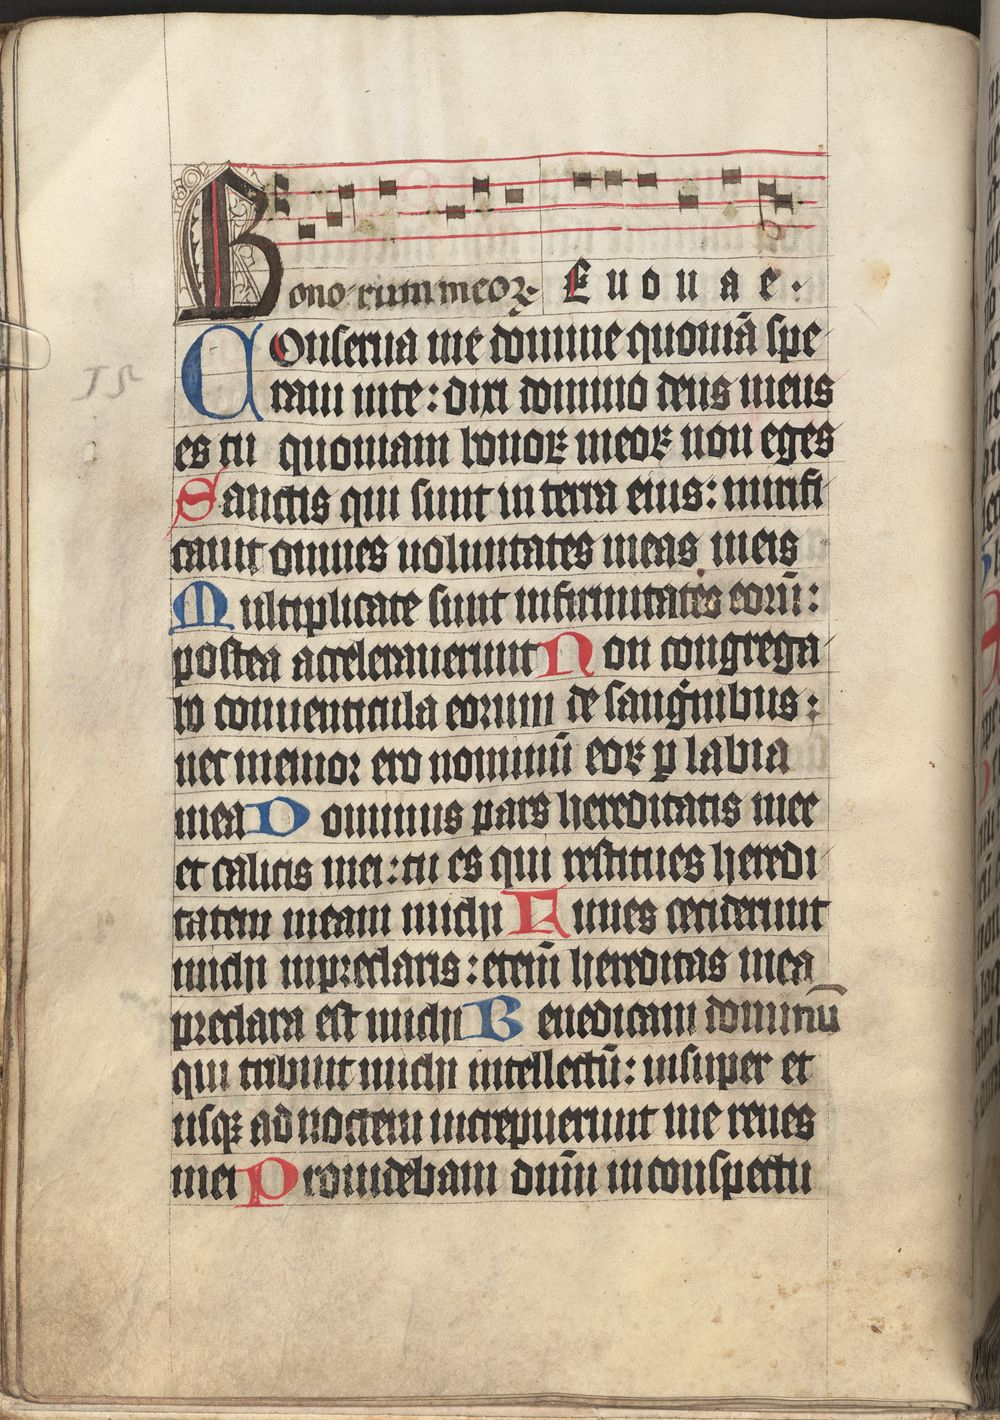 Bonorum meoꝝ Euouae.
Conserua me domine quoniā spe
raui in te: dixi domino deus meus
es tu quoniam bonoꝝ meoꝝ non eges
Sanctis qui sunt in terra eius: mirifi
cauit omnes voluntates meas in eis
Multiplicate sunt infirmitates eorū:
postea accelerauerunt Non congrega
bo conuenticula eorum de sanguinibus:
nec memor ero nominū eoꝝ ꝑ labia
mea Dominus pars hereditatis mee
et calicis mei: tu es qui restitues heredi
tatem meam michi Funes ceciderunt
michi in preclaris: etenī hereditas mea
preclara est michi Benedicam dominū
qui tribuit michi intellectū: insuper et
usqꝫ ad noctem increpuerunt me renes
mei Prouidebam dūm in conspectu